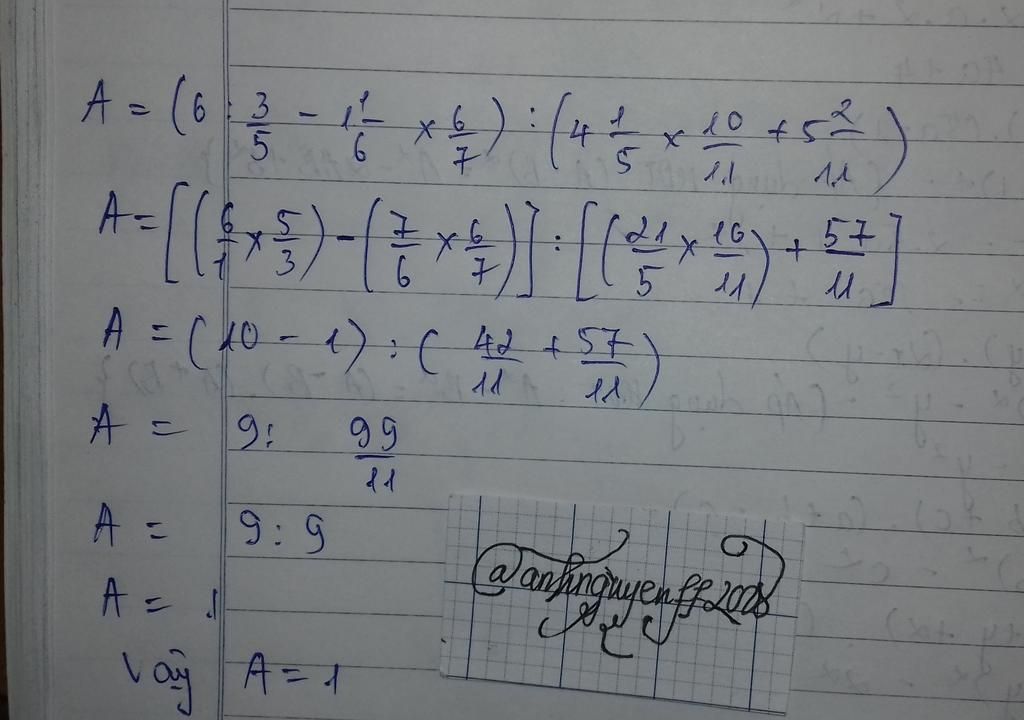 A = (6 : 3/5 - 1 1/6 × 6/7) : (4 1/5 × 10/11 + 5 2/11)
A = [(6/1 × 5/3) - (7/6 × 6/7)] : [(21/5 × 10/11) + 57/11]
A = (10 - 1) : (42/11 + 57/11)
A = 9 : 99/11
A = 9 : 9
A = 1
Vậy A = 1
@anhnguyenff2008